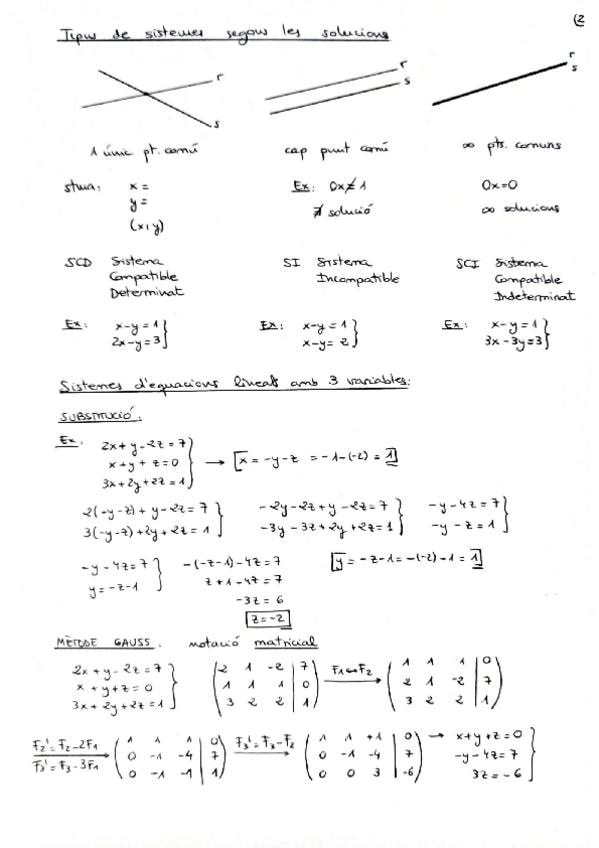 (2
Tipus de sistemes segons les solucions
r
s
r
s
r
s
1 únic pt. comú
cap punt comú
∞ pts. comuns
x =
y =
(x,y)
Ex: 0x≠1
∄ solució
0x=0
∞ solucions
SCD Sistema
Compatible
Determinat
SI Sistema
Incompatible
SCI Sistema
Compatible
Indeterminat
Ex: x-y=1
2x-y=3
Ex: x-y=1
x-y=2
Ex: x-y=1
3x-3y=3
Sistemes d'equacions lineals amb 3 variables:
SUBSTITUCIÓ:
Ex: 2x+y-2z=7
x+y+z=0 → x=-y-z =-1-(-2)=1
3x+2y+2z=1
2(-y-z)+y-2z=7
3(-y-z)+2y+2z=1
-2y-2z+y-2z=7
-3y-3z+2y+2z=1
-y-4z=7
-y-z=1
-y-4z=7
y=-z-1
-(-z-1)-4z=7
z+1-4z=7
-3z=6
z=-2
y=-z-1=-(-2)-1=1
MÈTODE GAUSS: notació matricial
2x+y-2z=7
x+y+z=0
3x+2y+2z=1
2 1 -2 | 7
1 1 1 | 0
3 2 2 | 1
F1↔F2
1 1 1 | 0
2 1 -2 | 7
3 2 2 | 1
F2'=F2-2F1
F3'=F3-3F1
1 1 1 | 0
0 -1 -4 | 7
0 -1 -1 | 1
F3'=F3-F2
1 1 +1 | 0
0 -1 -4 | 7
0 0 3 | -6
→ x+y+z=0
-y-4z=7
3z=-6